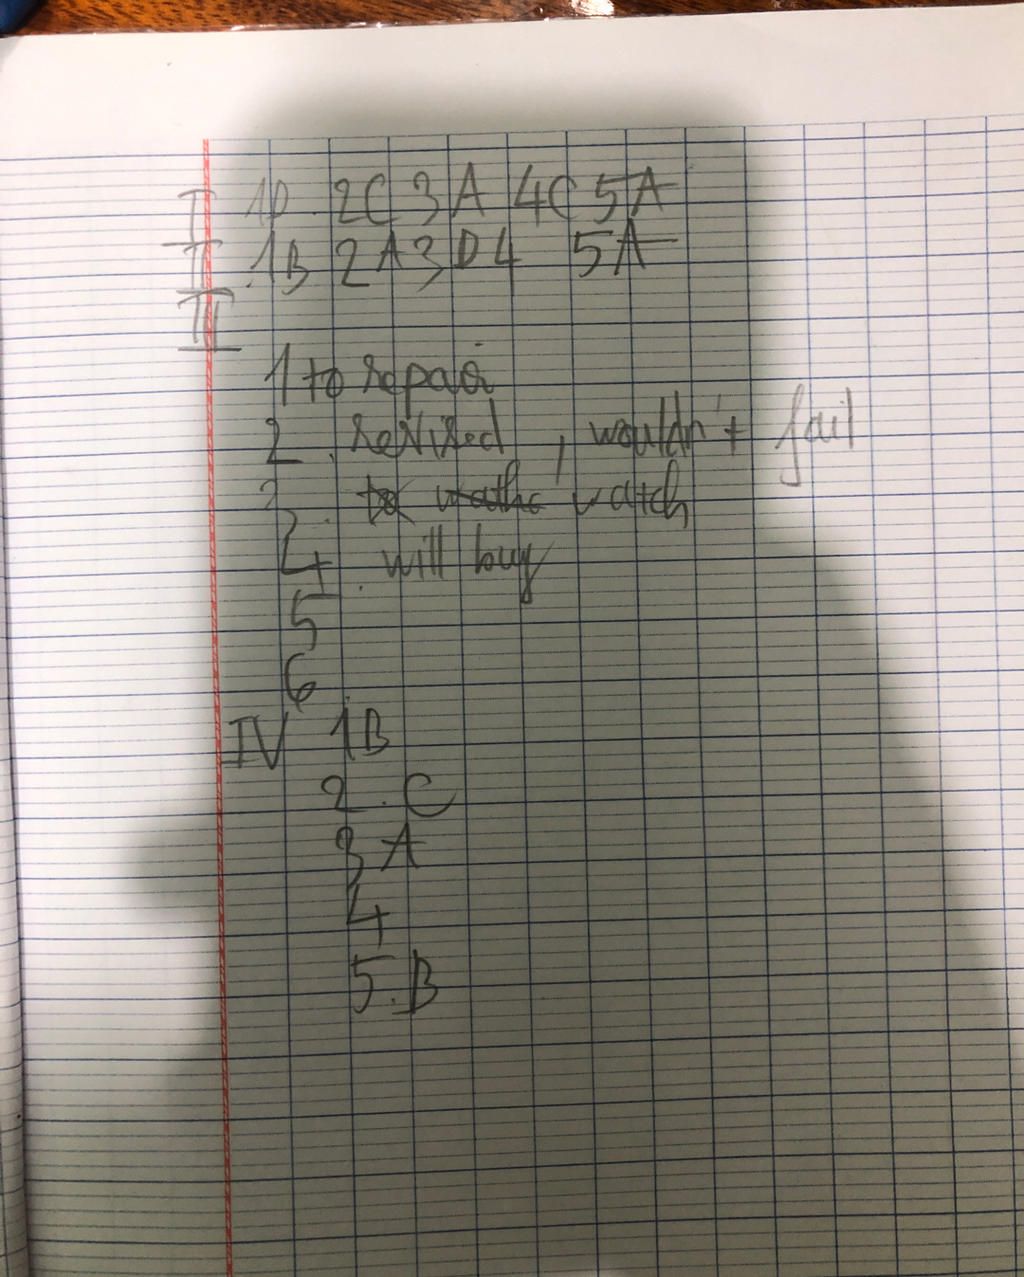 I 1D. 2C 3A 4C 5A
II .1B 2A 3D 4 5A
III
1 to repair
2. revised, wouldn't fail
3. watch
4. will buy
5
6.
IV 1B
2. C
3 A
4
5. B